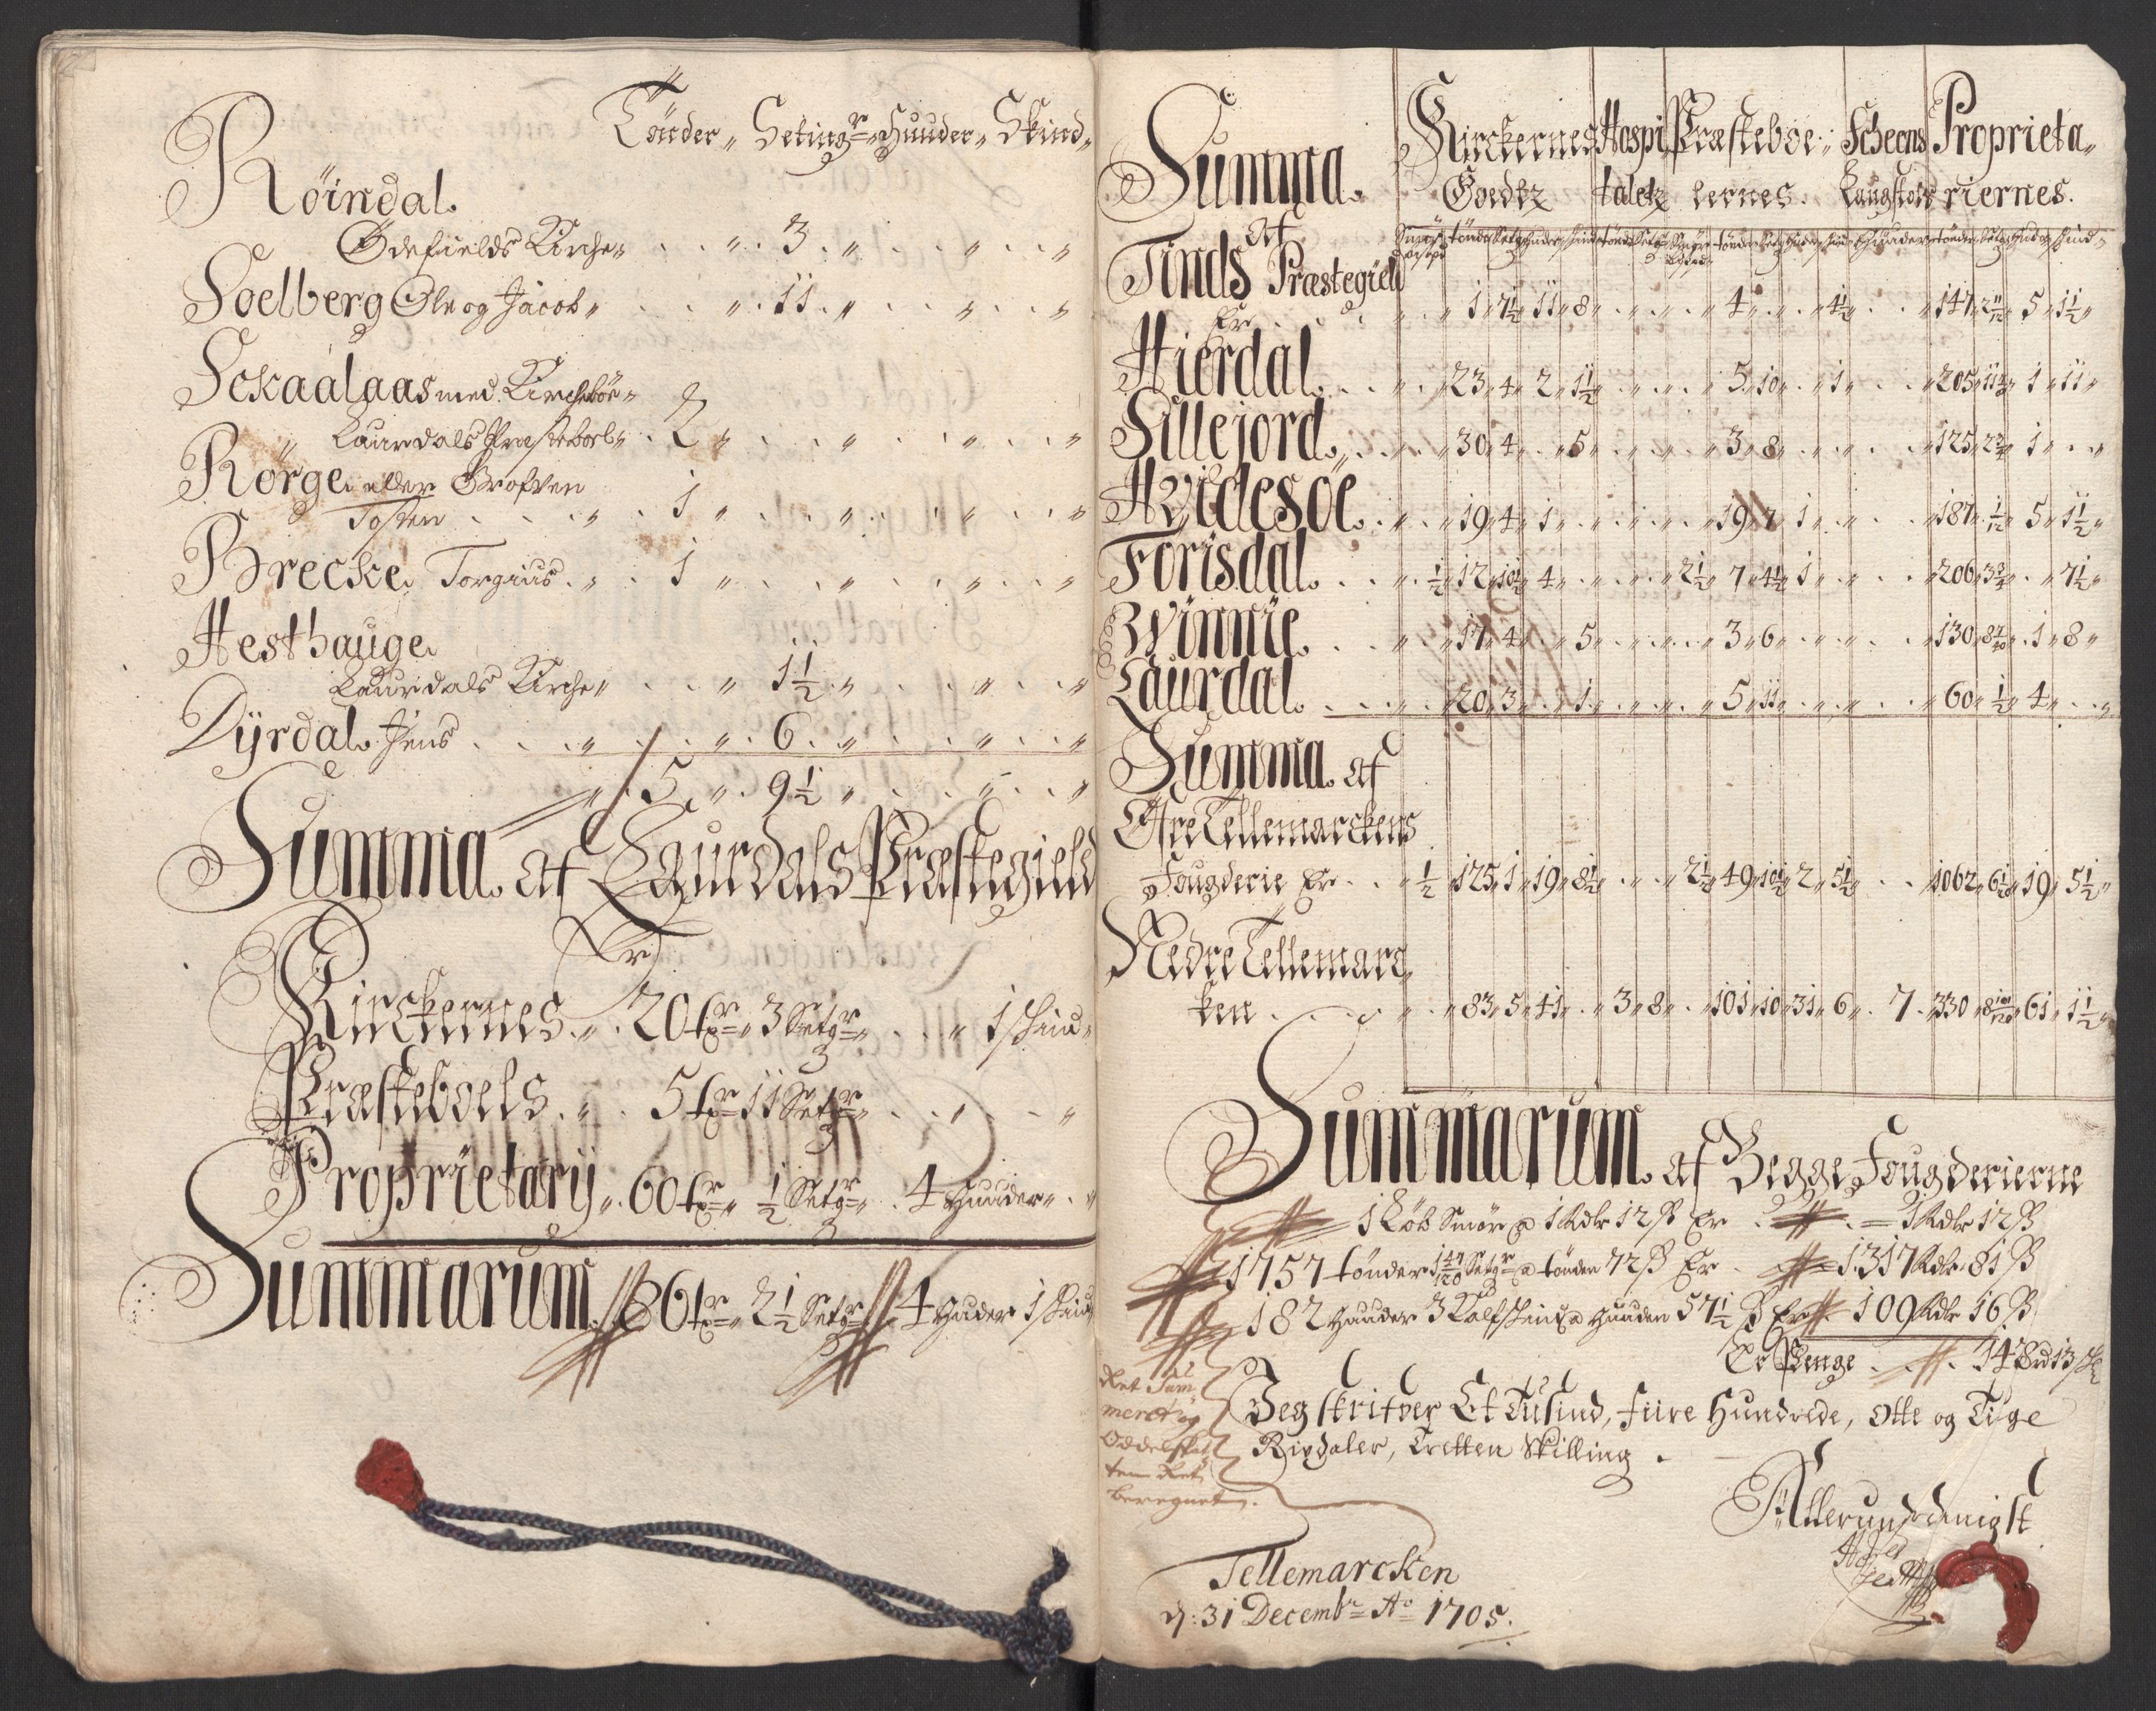 Tönder „ Setingr „ Huuder „ Skind „
Röindal.
Ödefields Kirche „ . . „ . 3 . „ . . „ . . „
Soelberg Ole og Jacob „ . . „ . 11 . „ . . „ . . „
Sckaalaas med Kirchebör „
Laurdals Præsteborl „ . 2 „ . . „ . . „ . . „
Rörge eller Grofven
Tosten . . . „ . 1 „ . . „ . . „ . . „
Brecke Torgius . „ . 1 „ . . „ . . „ . . „
Hesthauge
Laurdals Kirche „ . . „ 1½ „ . . „ . . „
Dyrdal. Jens . . . „ . . „ . 6 . „ . . „ . . „
„ . 5 „ . 9½ „ . . „ . . „
Summa af Laurdals Præstegield
Er
Kirckernes . „ . 20 tr „ 3 Setgr „ . . „ 1 skind
Præsteboels . „ . 5 tr 11 Setgr „ . . „ . . „
Proprietarij „ . 60 tr „ ½ Setgr „ . 4 Huuder „ . „
Summarum 86 tr „ 2½ Setgr 4 Huder 1 skind
Summa Kirckernes Hospi Præsteboe „ Scheens Proprieta „
Goedtz taletz lernes. Laugstols riernes.
Af
Tinds Præstegield
Er . . „ . „ 1 „ 7½ „ 11 „ 8 „ . . . „ 4 „ . . „ 4½ „ . . „ 147 „ 2 11/12 „ 5 „ 1½ „
Hierdal. . . „ . „ 23 „ 4 „ 2 „ 1½ „ . . . „ 5 „ 10 „ . „ 1 „ . . „ 205 „ 11¾ „ 1 „ 11 „
Sillejord. . . „ . „ 30 „ 4 „ . „ 5 „ . . . „ 3 „ 8 „ . . . . „ 125 „ 2¾ „ 1 „ . . „
Hvidesöe. . . „ . „ 19 „ 4 „ 1 „ . . . . „ 19 „ 7 „ 1 „ . . . „ 187 „ 1/12 „ 5 „ 1½ „
Forisdal. . . „ ½ „ 12 „ 10½ „ 4 „ . . . „ 2½ „ 7 „ 4½ „ 1 „ . . . „ 206 „ 3¾ „ . „ 7½ „
Winnie. . . „ . „ 17 „ 4 „ . „ 5 „ . . . „ 3 „ 6 „ . . . . „ 130 „ 8 „ 1 „ 8 „
Laurdal. . . „ . „ 20 „ 3 „ . „ 1 „ . . . „ 5 „ 11 „ . . . . „ 60 „ ½ „ 4 „ . . „
Summa af
Öfre Tellemarckens
Fougderie Er . . „ ½ „ 125 „ 1 „ 19 „ 8½ „ . . „ 2½ „ 49 „ 10½ „ 2 „ 5½ „ . . „ 1062 „ 6 „ 19 „ 5½ „
Nedre Tellemarc „
ken . . . . „ . „ 83 „ 5 „ 41 „ . „ 3 „ 8 „ . „ 101 „ 10 „ 31 „ 6 „ . 7 . „ 330 „ 8 101/120 „ 61 „ 1½ „
Summarum af Begge Fougderierne
1 Löb Smör a 1 Rdr 12 ß Er . . = 1 Rdr 12 ß
1757 tönder 1 47/120 Setgr a tönden 72 ß Er . = 1317 Rdr 81 ß
182 Huuder 3 Kalfskind a Huuden 57½ ß Er . 109 Rdr 16 ß
Er Penge . . . 1428 rd 13 sk
Ret Sum
meret og
Oddelskat
ten Ret
beregnet.
Jeg skrifver Et Tusind, fiire Hundrede, Otte og Tige
Rixdaler, Tretten Skilling .
Allerunderdanigst
Tellemarcken
d: 31 Decembr Ao 1705.